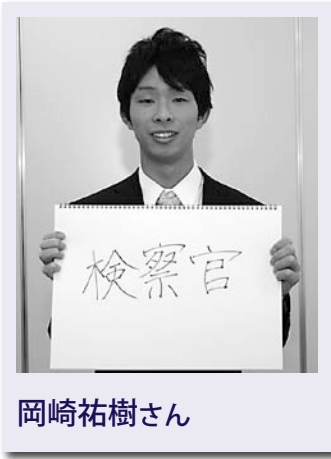 検察官
岡崎祐樹さん